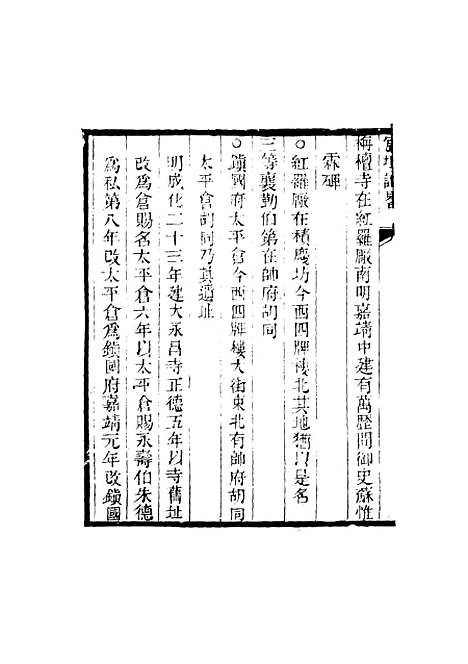 栴檀寺在紅羅厰南明嘉靖中建有萬歷間御史蘇惟
霖碑
○紅羅厰在積慶坊今西四牌樓北其地猶以是名
三等襄勤伯第在帥府胡同
○鎮國府太平倉今西四牌樓大街東北有帥府胡同
太平倉胡同乃其遺址
明成化二十三年建大永昌寺正德五年以寺舊址
改爲倉賜名太平倉六年以太平倉賜永壽伯朱德
爲私第八年改太平倉爲鎮國府嘉靖元年改鎮國